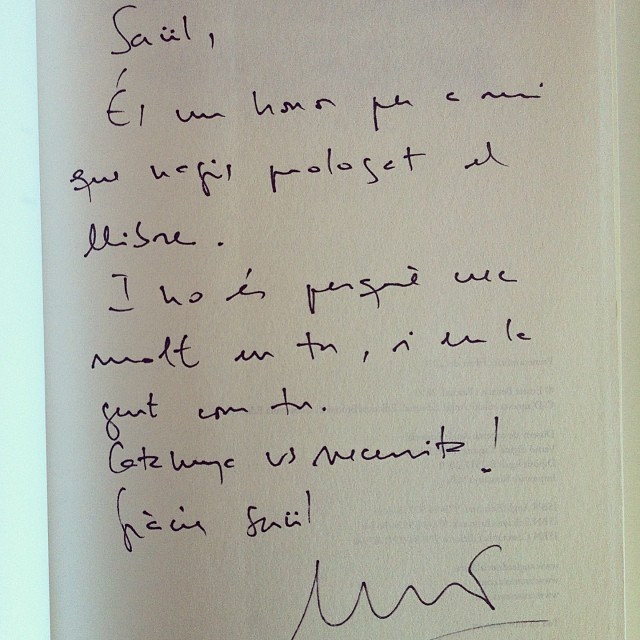 Saül,
És un honor per a mi
que hagis prologat el
llibre.
I ho és perquè crec
molt en tu, i en la
gent com tu.
Catalunya us necessita!
Gràcies Saül